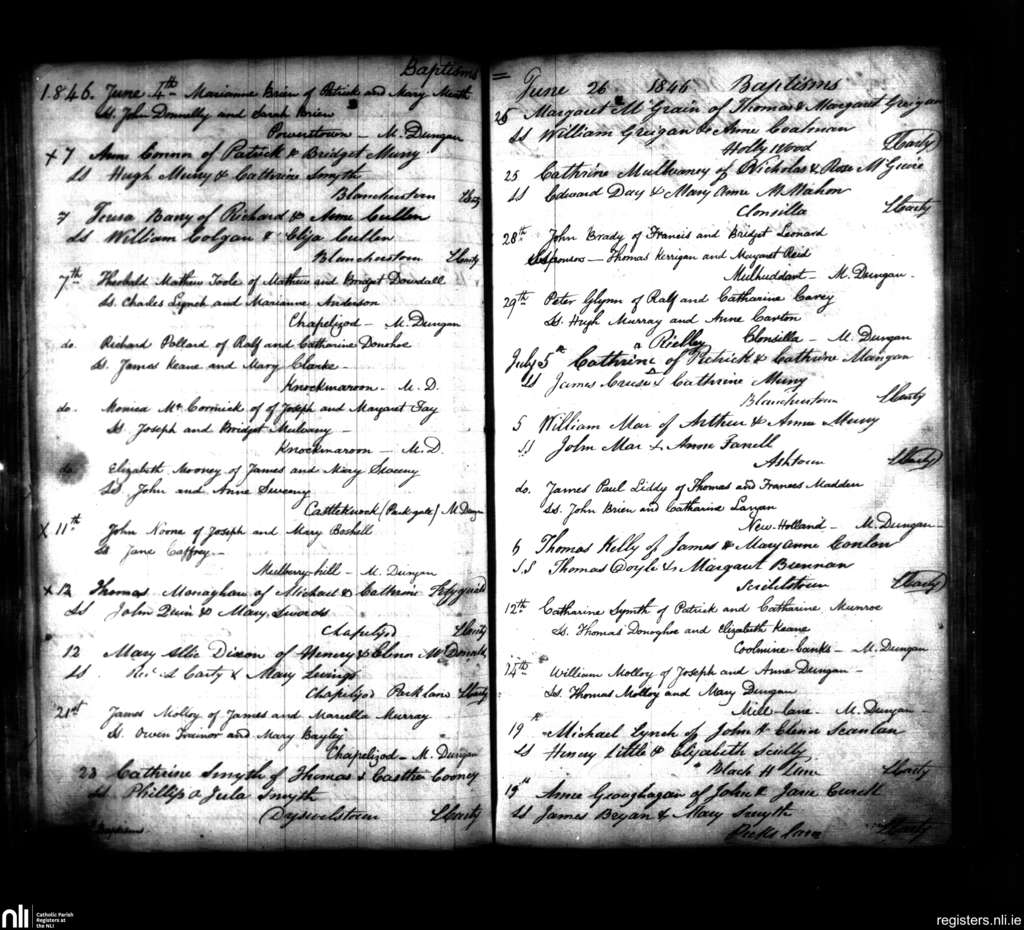 Baptisms
1846. June 4th Marianne Brien of Patrick and Mary Meath
Ss. John Donnelly and Sarah Brien
Powerstown - M. Dungan
x 7 Anne Connor of Patrick & Bridget Murry
SS Hugh Murry & Catherine Smyth
Blanchestown
7 Teresa Barry of Richard & Anne Cullen
SS William Colgan & Eliza Cullen
Blanchestown LCarty
7th Theobald Mathew Toole of Mathew and Bridget Dowdall
Ss. Charles Lynch and Marianne Anderson
Chapelizod - M. Dungan
do. Richard Pollard of Ralf and Catharine Donohoe
Ss. James Keane and Mary Clarke -
Knockmaroon - M. D.
do. Monica Mc Cormick of of Joseph and Margaret Fay
Ss Joseph and Bridget Mulvany -
Knockmaroon - M. D.
do. Elizabeth Mooney of James and Mary Sweeny
Ss John and Anne Sweeny
Castleknock (Parkgate) M. Dungan
x 11th John Noone of Joseph and Mary Boshell
Ss Jane Caffrey -
Mulberry-hill - M. Dungan
x 12 Thomas Monaghan of Michael & Cathrine
SS John Quin & Mary Swords
Chapelizod LCarty
12 Mary Dixon of Henery & Elenor McDonnell
SS L Carty & Mary
Chapelizod Park lane LCarty
21st James Molloy of James and Mariella Murray
Ss. Owen Trainor and Mary Bayley
Chapelizod - M. Dungan
23 Cathrine Smyth of Thomas & Cooney
SS. Phillip & Jula Smyth
LCarty
Baptisms
June 26 1846 Baptisms
25 Margaret McGrain of Thomas & Margaret Greigan
SS William Greigan & Anne Coalman
Holly Wood LCarty
25 Cathrine Mulvaney of Nicholas & Rose McGuire
SS Edward Day & Mary Anne McMahon
Clonsilla LCarty
28th John Brady of Francis and Bridget Leonard
Sponsors - Thomas Kerrigan and Margaret Reid
Mulhuddart - M. Dungan.
29th Peter Glynn of Ralf and Catharine Carey
Ss. Hugh Murray and Anne Carton
Clonsilla M. Dungan
Rielley
July 5th Cathrine of Patrick & Cathrine Mangan
SS James Cruse & Cathrine Murry
Blanchestown LCarty
5 William Mar of Arthur & Anne Murry
SS John Mar & Anne Farrell
Ashtown LCarty
do. James Paul Liddy of Thomas and Frances Madden
Ss. John Brien and Catharine Lanyan
New-Holland - M. Dungan -
6 Thomas Kelly of James & Mary anne Conlan
SS Thomas Doyle & Margaret Brennan
LCarty
12th Catharine Symth of Patrick and Catharine Munroe
Ss. Thomas Donoghoe and Elizabeth Keane
Coolmine-banks - M. Dungan
14th William Molloy of Joseph and Anne Dungan -
Ss. Thomas Molloy and Mary Dungan
Mill-Lane - M. Dungan -
19th Michael Lynch of John & Elenor Scanlan
SS Henery Little & Elizabeth Scully
LCarty
19th Anne Graughagan of John & Jane Curell
SS James Bryan & Mary Smyth
lane LCarty
nli
Catholic Parish
Registers at
the NLI
registers.nli.ie